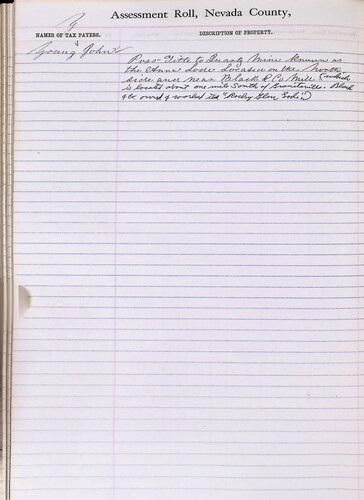 Y
Assessment Roll, Nevada County,
NAMES OF TAX PAYERS.
DESCRIPTION OF PROPERTY.
Young John
Poss Title to Quartz Mine Known as
the Anna Lode Located on the North
side and near Black & Co Mill (which
is located about one mile South of Graniteville. Black
& Co owned & worked the "Rocky Glen Lode")